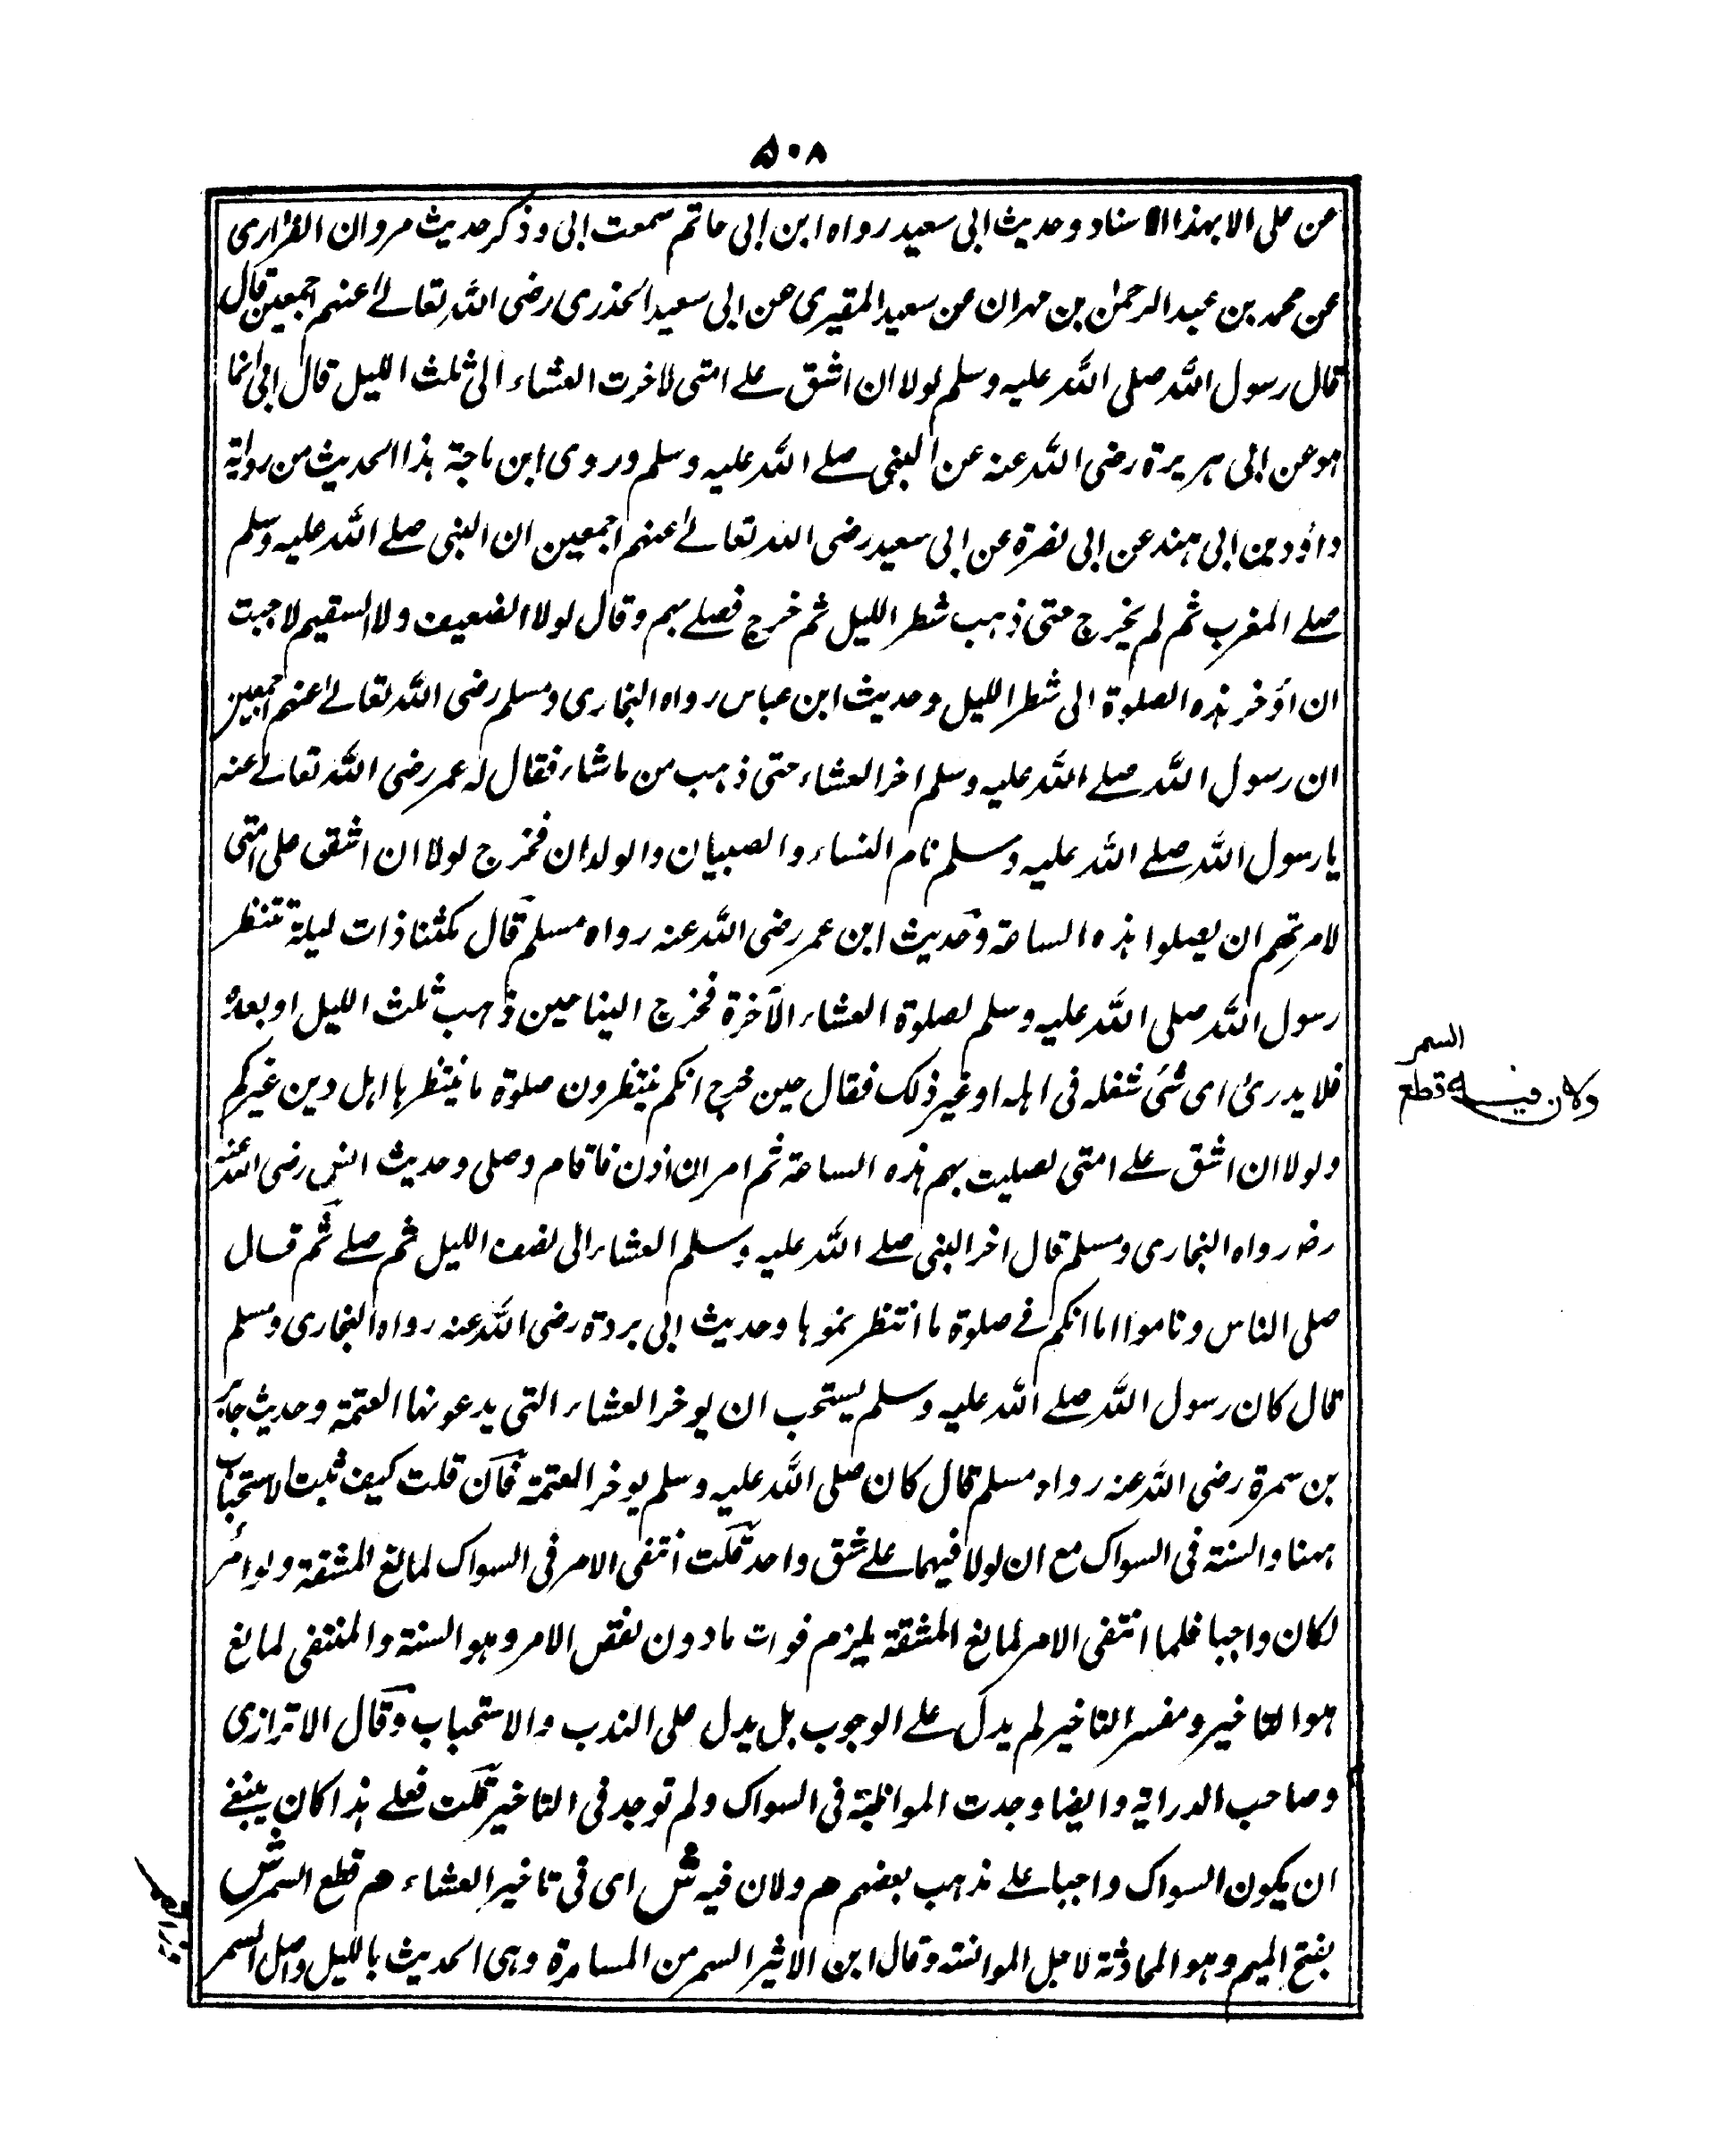 ۵۰۸
عن على الا بهذا الاسناد وحديث ابى سعيد رواه ابن ابى حاتم سمعت ابى وذكر حديث مروان الفزارى
عن محمد بن عبد الرحمٰن بن مهران عن سعيد المقبرى عن ابى سعيد الخدرى رضى الله تعالےٰ عنهم اجمعين قال
قال رسول الله صلى الله عليه وسلم لولا ان اشق علے امتى لاخرت العشاء الى ثلث الليل قال ابى انما
هو عن ابى هريرة رضى الله عنه عن النبى صلے الله عليه وسلم وروى ابن ماجة هذا الحديث من رواية
داؤد بن ابى هند عن ابى نضرة عن ابى سعيد رضى الله تعالےٰ عنهم اجمعين ان النبى صلے الله عليه وسلم
صلے المغرب ثم لم يخرج حتى ذهب شطر الليل ثم خرج فصلے بهم وقال لولا الضعيف ولا السقيم لاحببت
ان اؤخر هذه الصلوة الى شطر الليل وحديث ابن عباس رواه البخارى ومسلم رضى الله تعالےٰ عنهم اجمعين
ان رسول الله صلے الله عليه وسلم اخر العشاء حتى ذهب من ما شاء فقال له عمر رضى الله تعالےٰ عنه
يا رسول الله صلے الله عليه وسلم نام النساء والصبيان والولدان فخرج لولا ان اشقق على امتى
لامرتهم ان يصلوا هذه الساعة وحديث ابن عمر رضى الله عنه رواه مسلم قال مكثنا ذات ليلة ننتظر
رسول الله صلى الله عليه وسلم لصلوة العشاء الآخرة فخرج الينا حين ذهب ثلث الليل او بعده
فلا يدرىٰ اى شئى شغله فى اهله او غير ذلك فقال حين خرج انكم تنتظرون صلوة ما ينتظرها اهل دين غيركم
ولولا ان اشق علے امتى لصليت بهم هذه الساعة ثم امر ان اذن فاقام وصلى وحديث انس رضى الله عنه
رضہ رواه البخارى ومسلم قال اخر النبى صلے الله عليه وسلم العشاء الى نصف الليل ثم صلے ثم قال
صلى الناس وناموا اما انكم فے صلوة ما انتظرتموها وحديث ابى بردة رضى الله عنه رواه البخارى ومسلم
قال كان رسول الله صلے الله عليه وسلم يستحب ان يوخر العشاء التى يدعونها العتمة وحديث جابر
بن سمرة رضى الله عنه رواه مسلم قال كان صلى الله عليه وسلم يوخر العتمة فان قلت كيف ثبت الاستحباب
ههنا والسنة فى السواك مع ان لولا فيهما علے شق واحد قلت انتفى الامر فى السواك لمانع المشقة ولو امر
لكان واجبا فلما انتفى الامر لمانع المشقة يلزم فوات ما دون نفقص الامر وهو السنة والمنتفى لمانع
هو التاخير ومفسر التاخير لم يدل علے الوجوب بل يدل على الندب والاستحباب وقال الاترازى
وصاحب الدراية وايضا وجدت المواظبة فى السواك ولم توجد فى التاخير قلت فعلے هذا كان ينبغے
ان يكون السواك واجبا علے مذهب بعضهم هم ولان فيه ش اى فى تاخير العشاء هم قطع السمر ش
بفتح الميم وهو المحادثة لاجل الموانسة وقال ابن الاثير السمر من المسامرة وهى الحديث بالليل واصل السمر
ولان فيه قطع
السمر